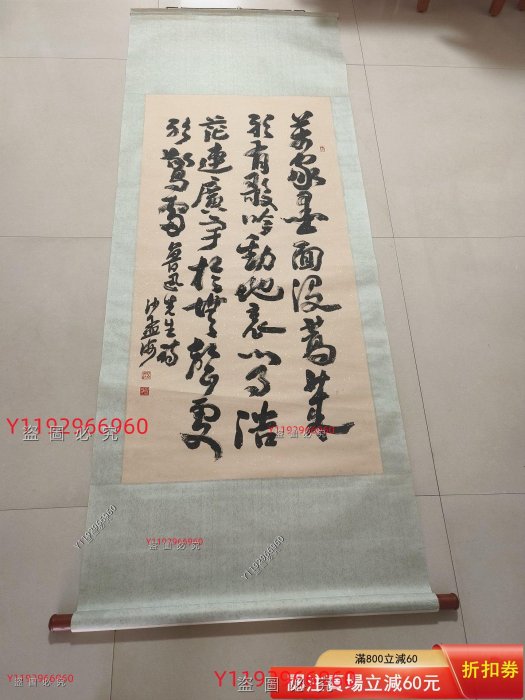 萬家墨面沒蒿萊
敢有歌吟動地哀心事浩
茫連廣宇於無聲處
聽驚雷 魯迅先生詩
沙孟海
Y1192966960
盜圖必究
Y1192966960
盜圖必究
Y1192966960
Y1192966960
盜圖必究
Y1192966960
盜圖必究
Y1192966960
盜圖必究
滿800立減60
賣場立減60元
折扣券